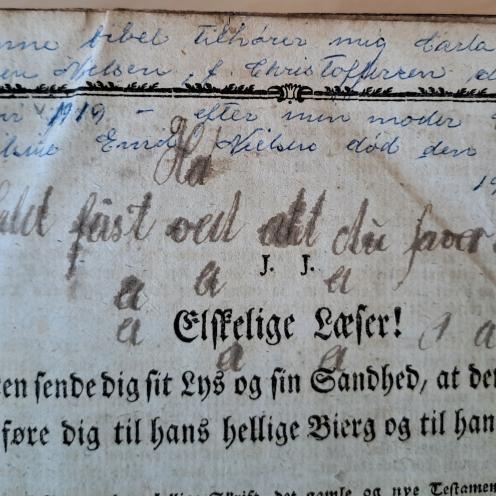 nne bibel tilhører mig Carla
en Nielsen, f. Christoffersen d
1919 - efter min moder
Emil Nielsen død den
19
Ha
ald fast ved alt du haver
J. J.
a a a
a
Elskelige Læser!
a a a
en sende dig sit Lys og sin Sandhed, at de
føre dig til hans hellige Bierg og til han
Skrift, det gamle og nye Testamen